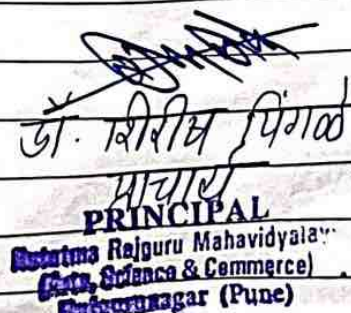 डॉ. शिरीष पिंगळे
प्राचार्य
PRINCIPAL
Rajguru Mahavidyalay
(Arts, Science & Commerce)
Rajgurunagar (Pune)